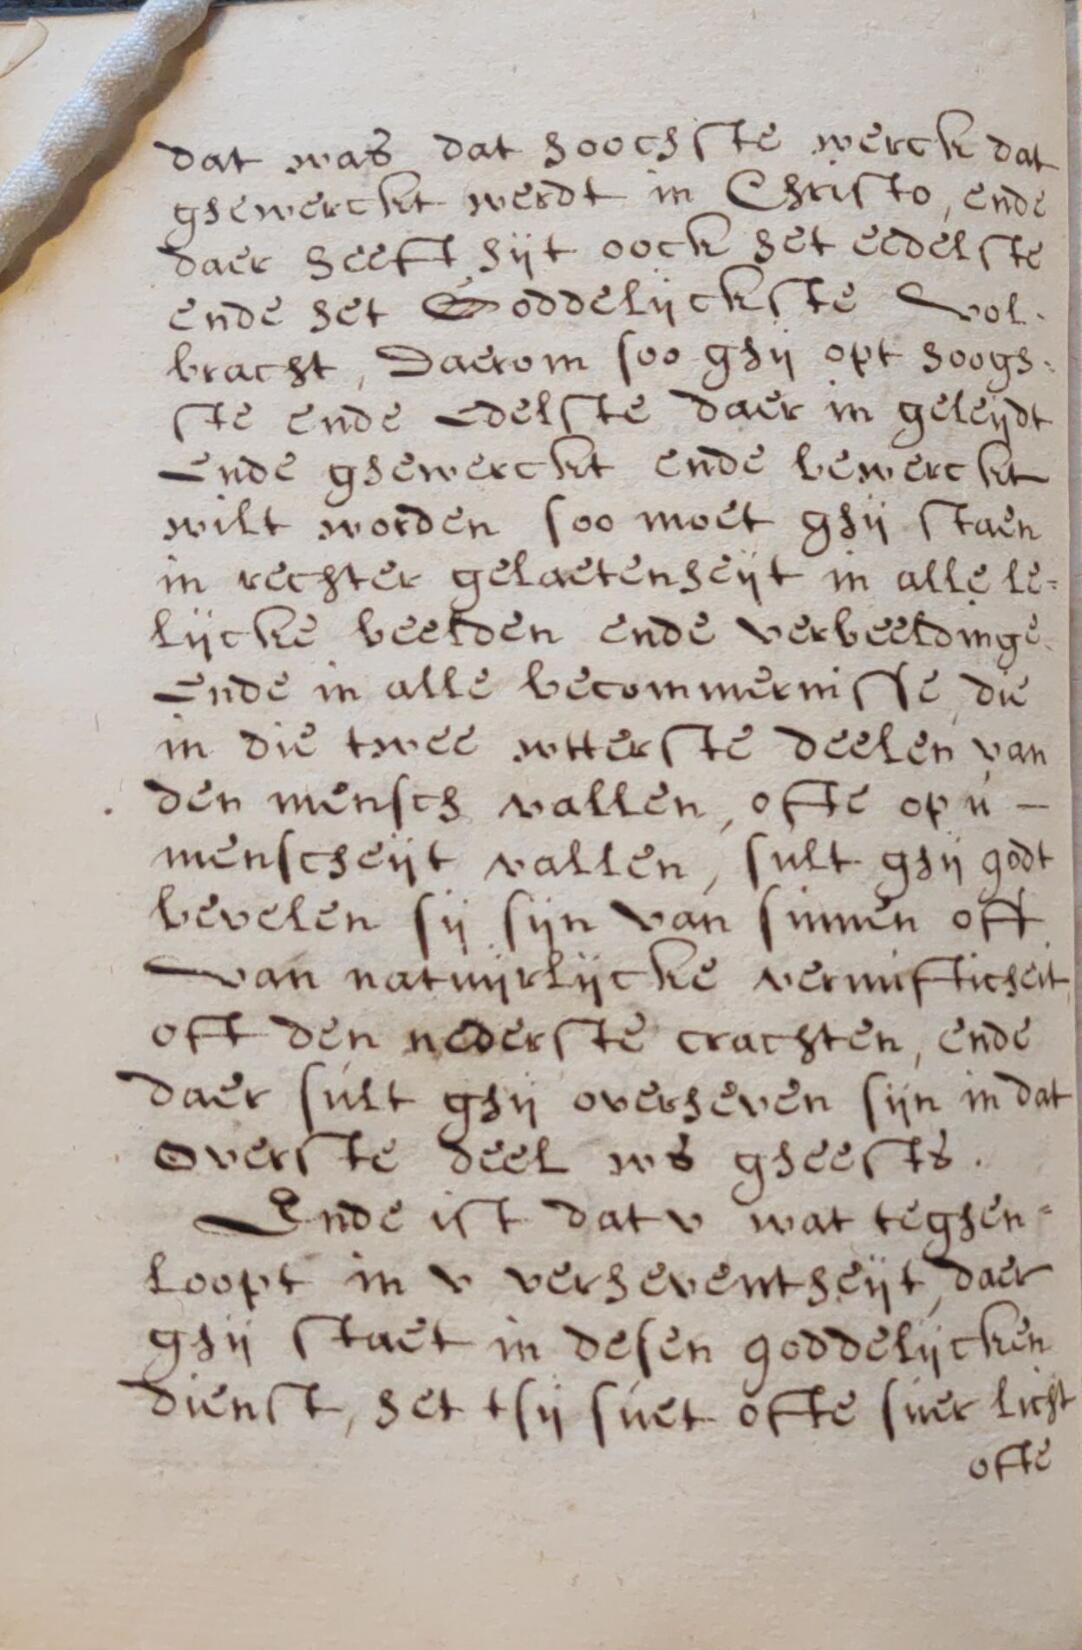 dat was dat hoochste werck dat
ghewerckt werdt in Christo, ende
daer heeft hijt oock het eedelste
ende het Goddelijckste vol-
bracht, Daerom soo ghij opt hoogh-
ste ende Edelste daer in geleijdt
Ende ghewerckt ende bewerckt
wilt worden soo moet ghij staen
in rechter gelaetenheijt in alle le-
lijcke beelden ende verbeeldinge
Ende in alle becommernisse, die
in die twee wtterste deelen van
den mensch vallen, ofte op u -
menscheijt vallen, sult ghij godt
bevelen sij sijn van sinnen oft
van natuijrlijcke vernufticheit
oft den nederste crachten, ende
daer sult ghij overheven sijn in dat
overste deel ws gheests.
Ende ist dat v wat teghen-
loopt in v verheventheijt, daer
ghij staet in desen goddelijcken
dienst, het tsij suet ofte suer licht
ofte